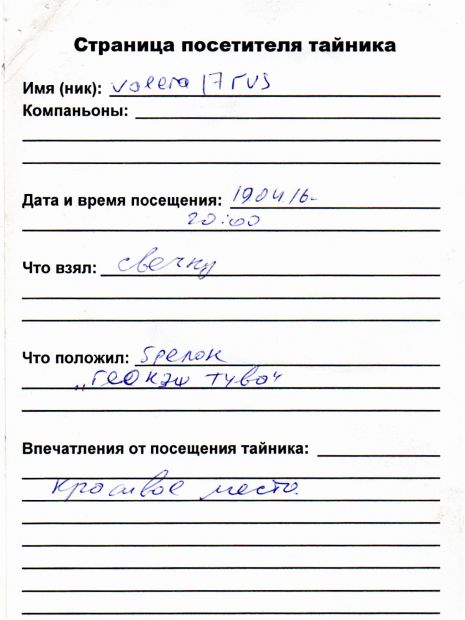 Страница посетителя тайника
Имя (ник): valera 17 rus
Компаньоны:
Дата и время посещения: 190416
20:00
Что взял: свечку
Что положил: брелок
„Геокэш Тува"
Впечатления от посещения тайника:
красивое место.